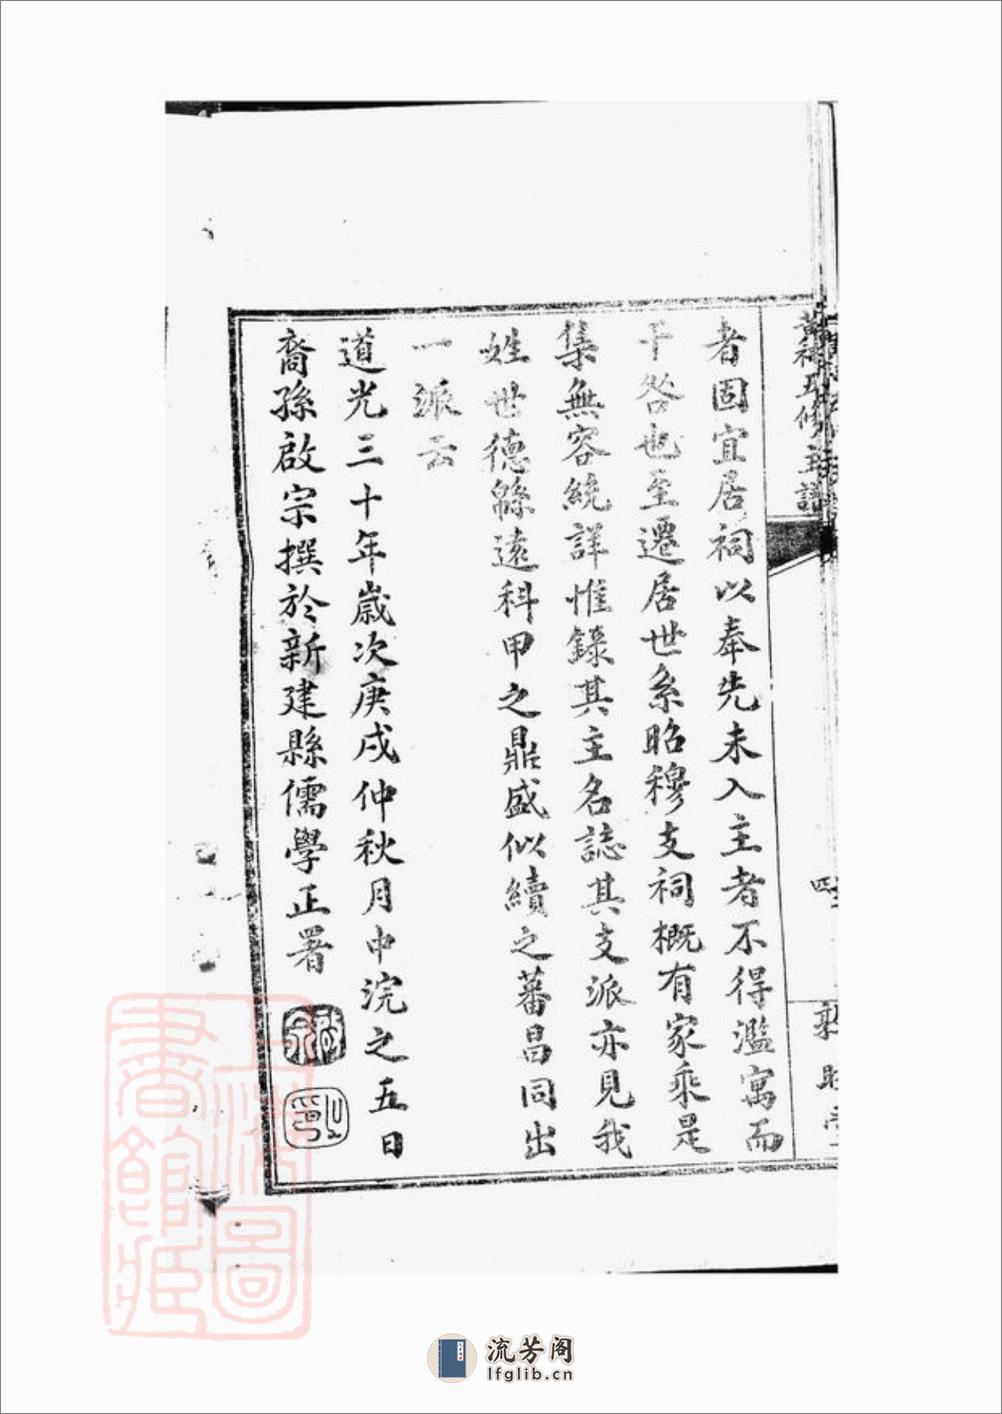 黃祠五修主譜
四
敦睦堂
者固宜居祠以奉先未入主者不得濫寓而
干咎也至遷居世系昭穆支祠概有家乘是
集無容統詳惟錄其主名誌其支派亦見我
姓世德緜遠科甲之鼎盛似續之蕃昌同出
一派云
道光三十年歲次庚戌仲秋月中浣之五日
裔孫啟宗撰於新建縣儒學正署
上海圖
書館藏
流芳阁
lfglib.cn